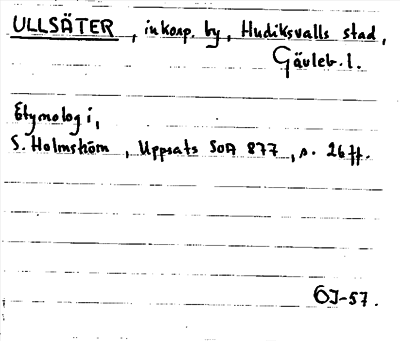 ULLSÄTER, inkorp. by, Hudiksvalls stad,
Gävleb. l.
Etymologi,
S. Holmström, Uppsats SOA 877, s. 26 ff.
ÖJ-57.